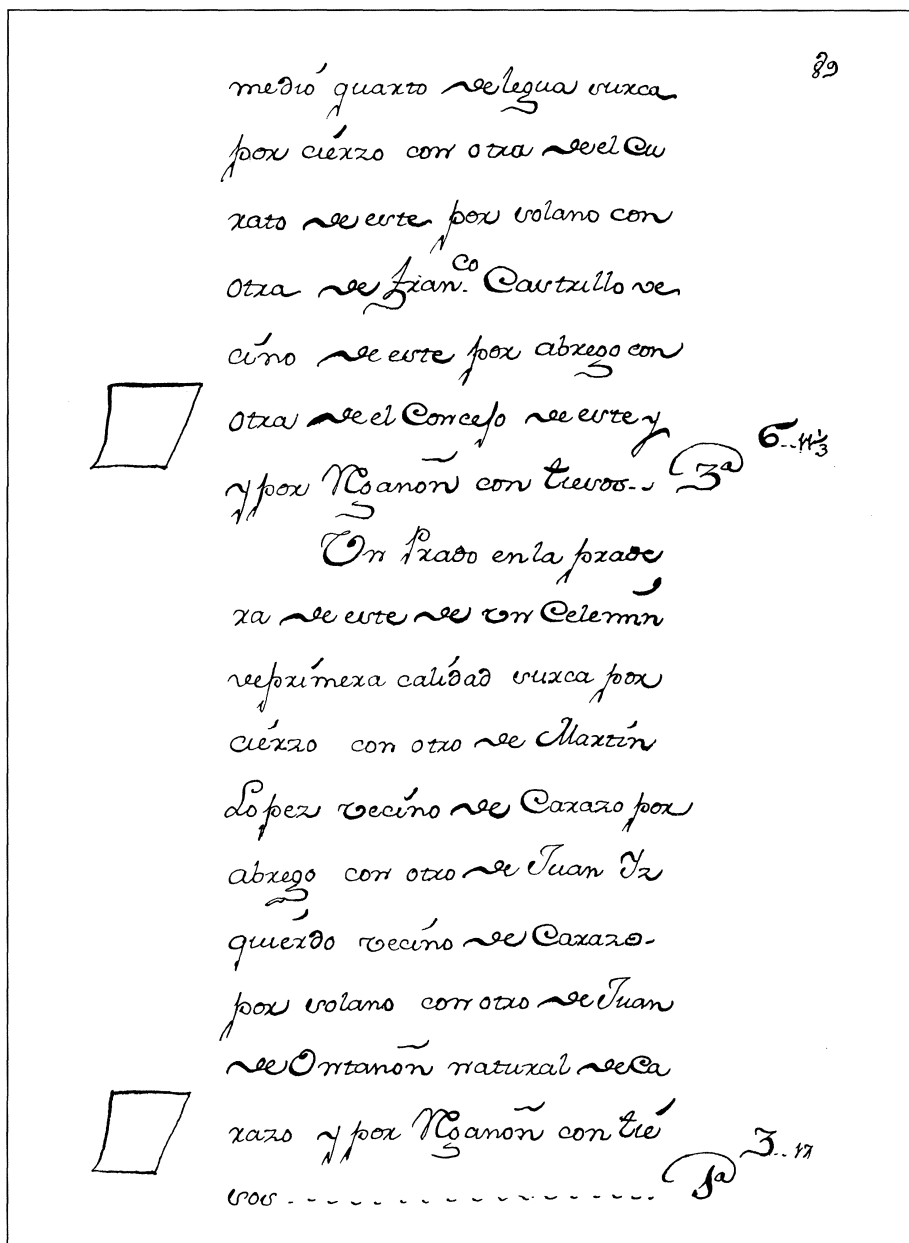 89
medió quarto de legua surca
por ciérzo con otra de el Cu
rato de este por solano con
otra de Fran.co Castrillo ve
cíno de este por abrego con
otra de el Concejo de este y
y por Rgañon con tiesos 3ª 6
Un Prado en la prade
ra de este de un Celemín
de prímera calídad surca por
ciérzo con otro de Martín
Lopez vecíno de Carazo por
abrego con otro de Juan Yz
quiérdo vecíno de Carazo
por solano con otro de Juan
de Ontañon natural de Ca
razo y por Rgañon con tié
sos 1ª 3